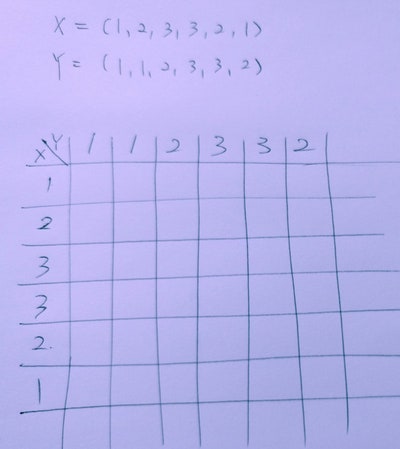 X = (1, 2, 3, 3, 2, 1)
Y = (1, 1, 2, 3, 3, 2)
X\Y 1 1 2 3 3 2
1
2
3
3
2.
1